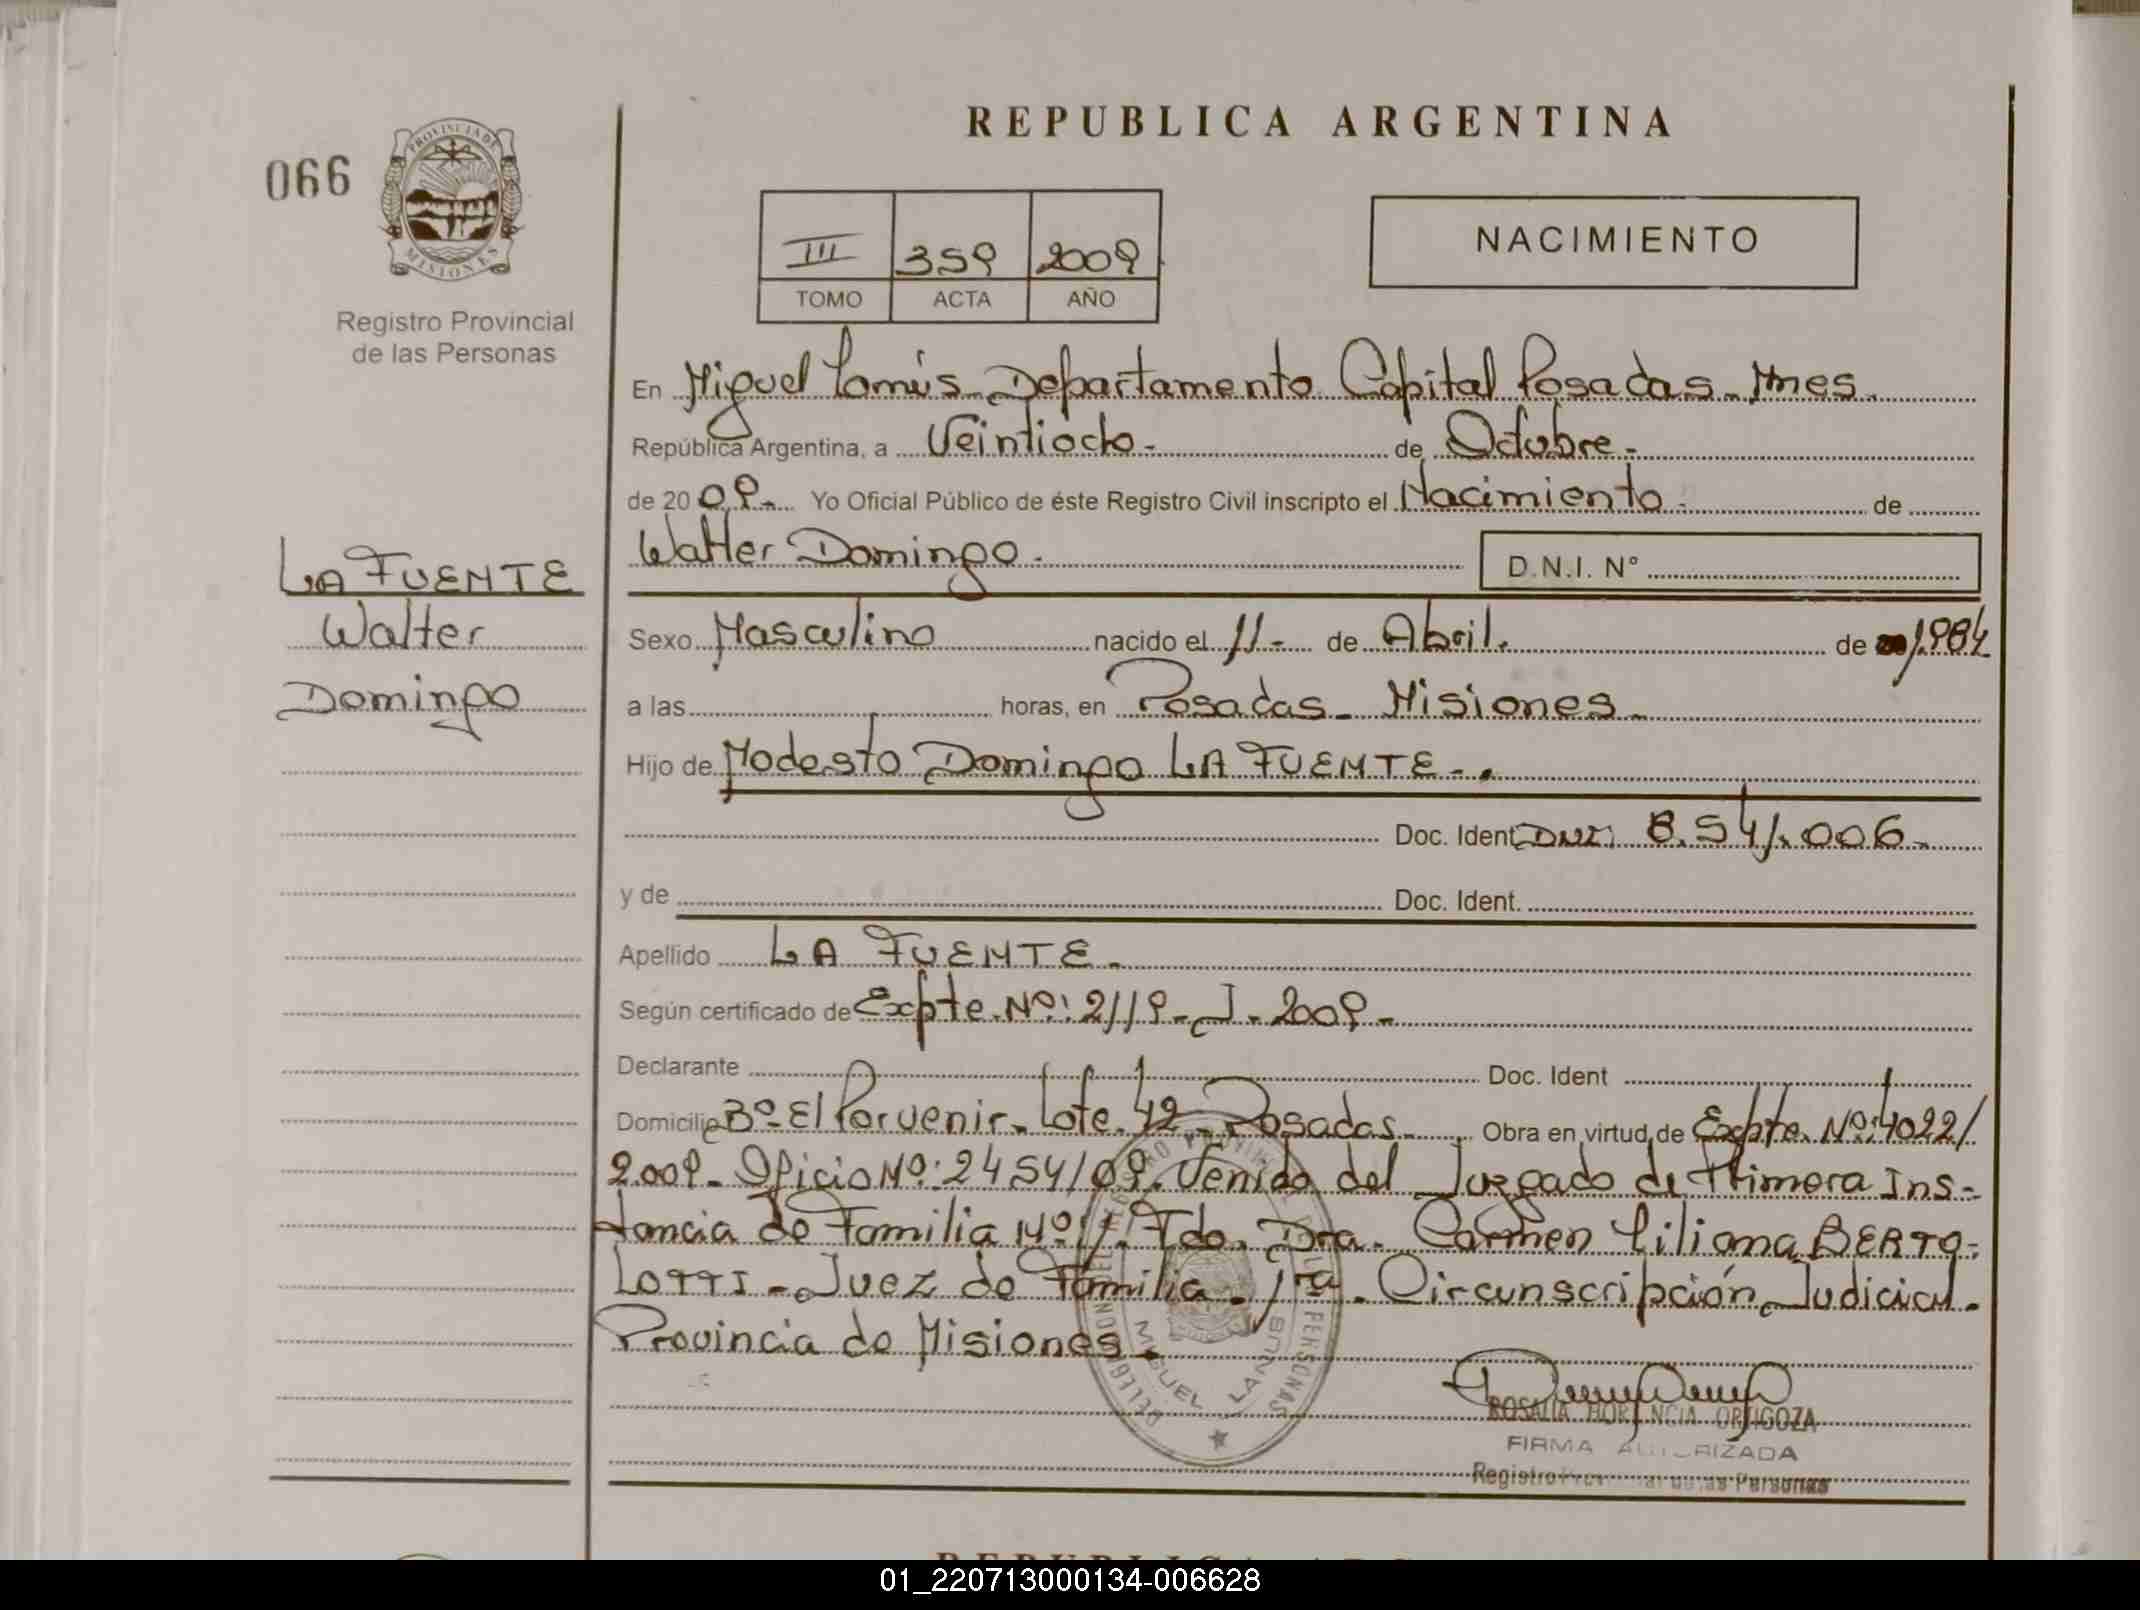 REPUBLICA ARGENTINA
066
PROVINCIA DE
MISIONES
Registro Provincial
de las Personas
III 359 2009
TOMO ACTA AÑO
NACIMIENTO
En Miguel Lanús - Departamento Capital Posadas - Mnes.
República Argentina, a Veintiocho - de Octubre -
de 20 09 - Yo Oficial Público de éste Registro Civil inscripto el Nacimiento - de
Walter Domingo - D.N.I. N°
LA FUENTE
Walter
Domingo
Sexo Masculino nacido el 11 - de Abril. de 1984
a las horas, en Posadas - Misiones -
Hijo de Modesto Domingo LA FUENTE - .
Doc. Ident. DNI: 8.541.006 -
y de Doc. Ident.
Apellido LA FUENTE -
Según certificado de Expte. Nº: 2119 - J - 2009 -
Declarante Doc. Ident
Domicilio Bº El Porvenir - Lote 42 - Posadas - Obra en virtud de Expte. Nº: 4022/
2009 - Oficio Nº: 2454/09. Venido del Juzgado de Primera Ins-
tancia de Familia Nº 1. Fdo. Dra. Carmen Liliana BERTO-
LOTTI - Juez de Familia - 1ra. Circunscripción Judicial.
Provincia de Misiones.
MIGUEL LANUS
PERSONAS
ROSALIA HORTENCIA ORTIGOZA
FIRMA AUTORIZADA
Registro Provincial de las Personas
01_220713000134-006628